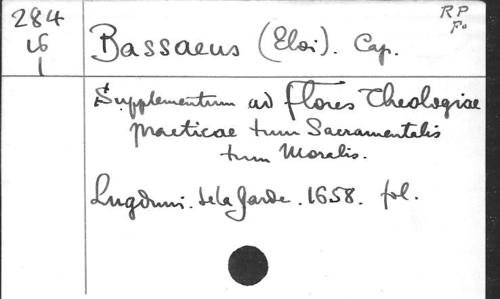 284
16
1
RP
Fo
Bassaeus (Eloi). Cap.
Supplementum ad flores Theologiae
practicae tum Sacramentalis
tum Moralis.
Lugduni. de la Garde. 1658. fol.